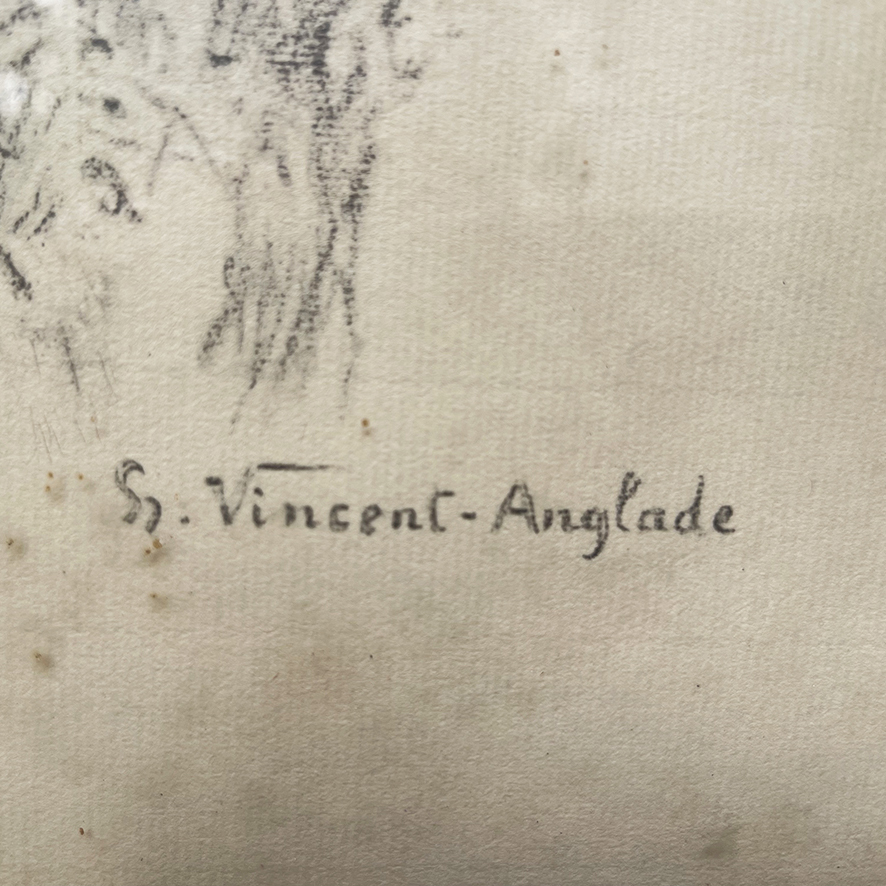 H. Vincent-Anglade